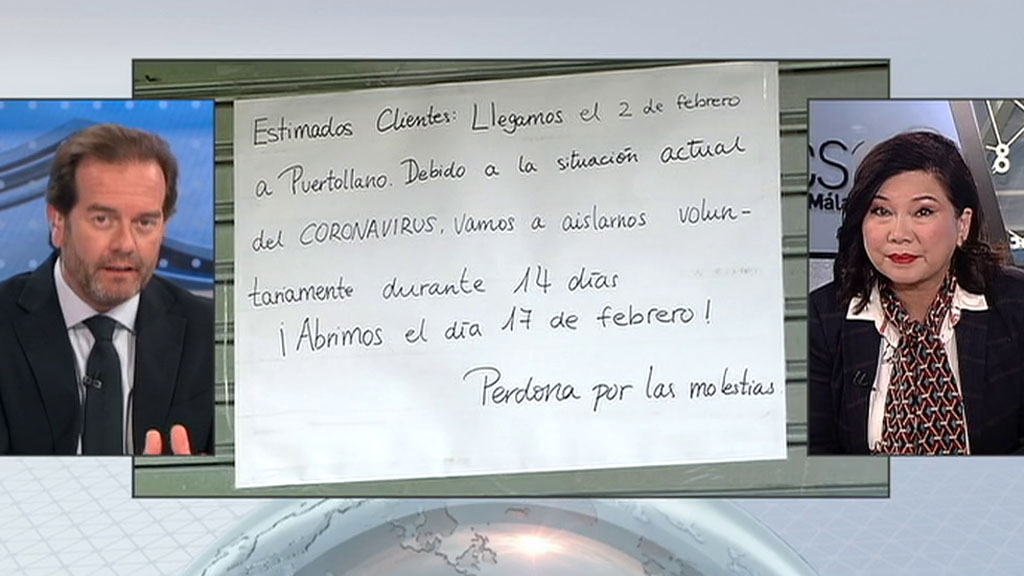 Estimados Clientes: Llegamos el 2 de febrero
a Puertollano. Debido a la situación actual
del CORONAVIRUS, vamos a aislarnos volun-
tariamente durante 14 días
¡Abrimos el día 17 de febrero!
Perdona por las molestias.
CSO
Mála